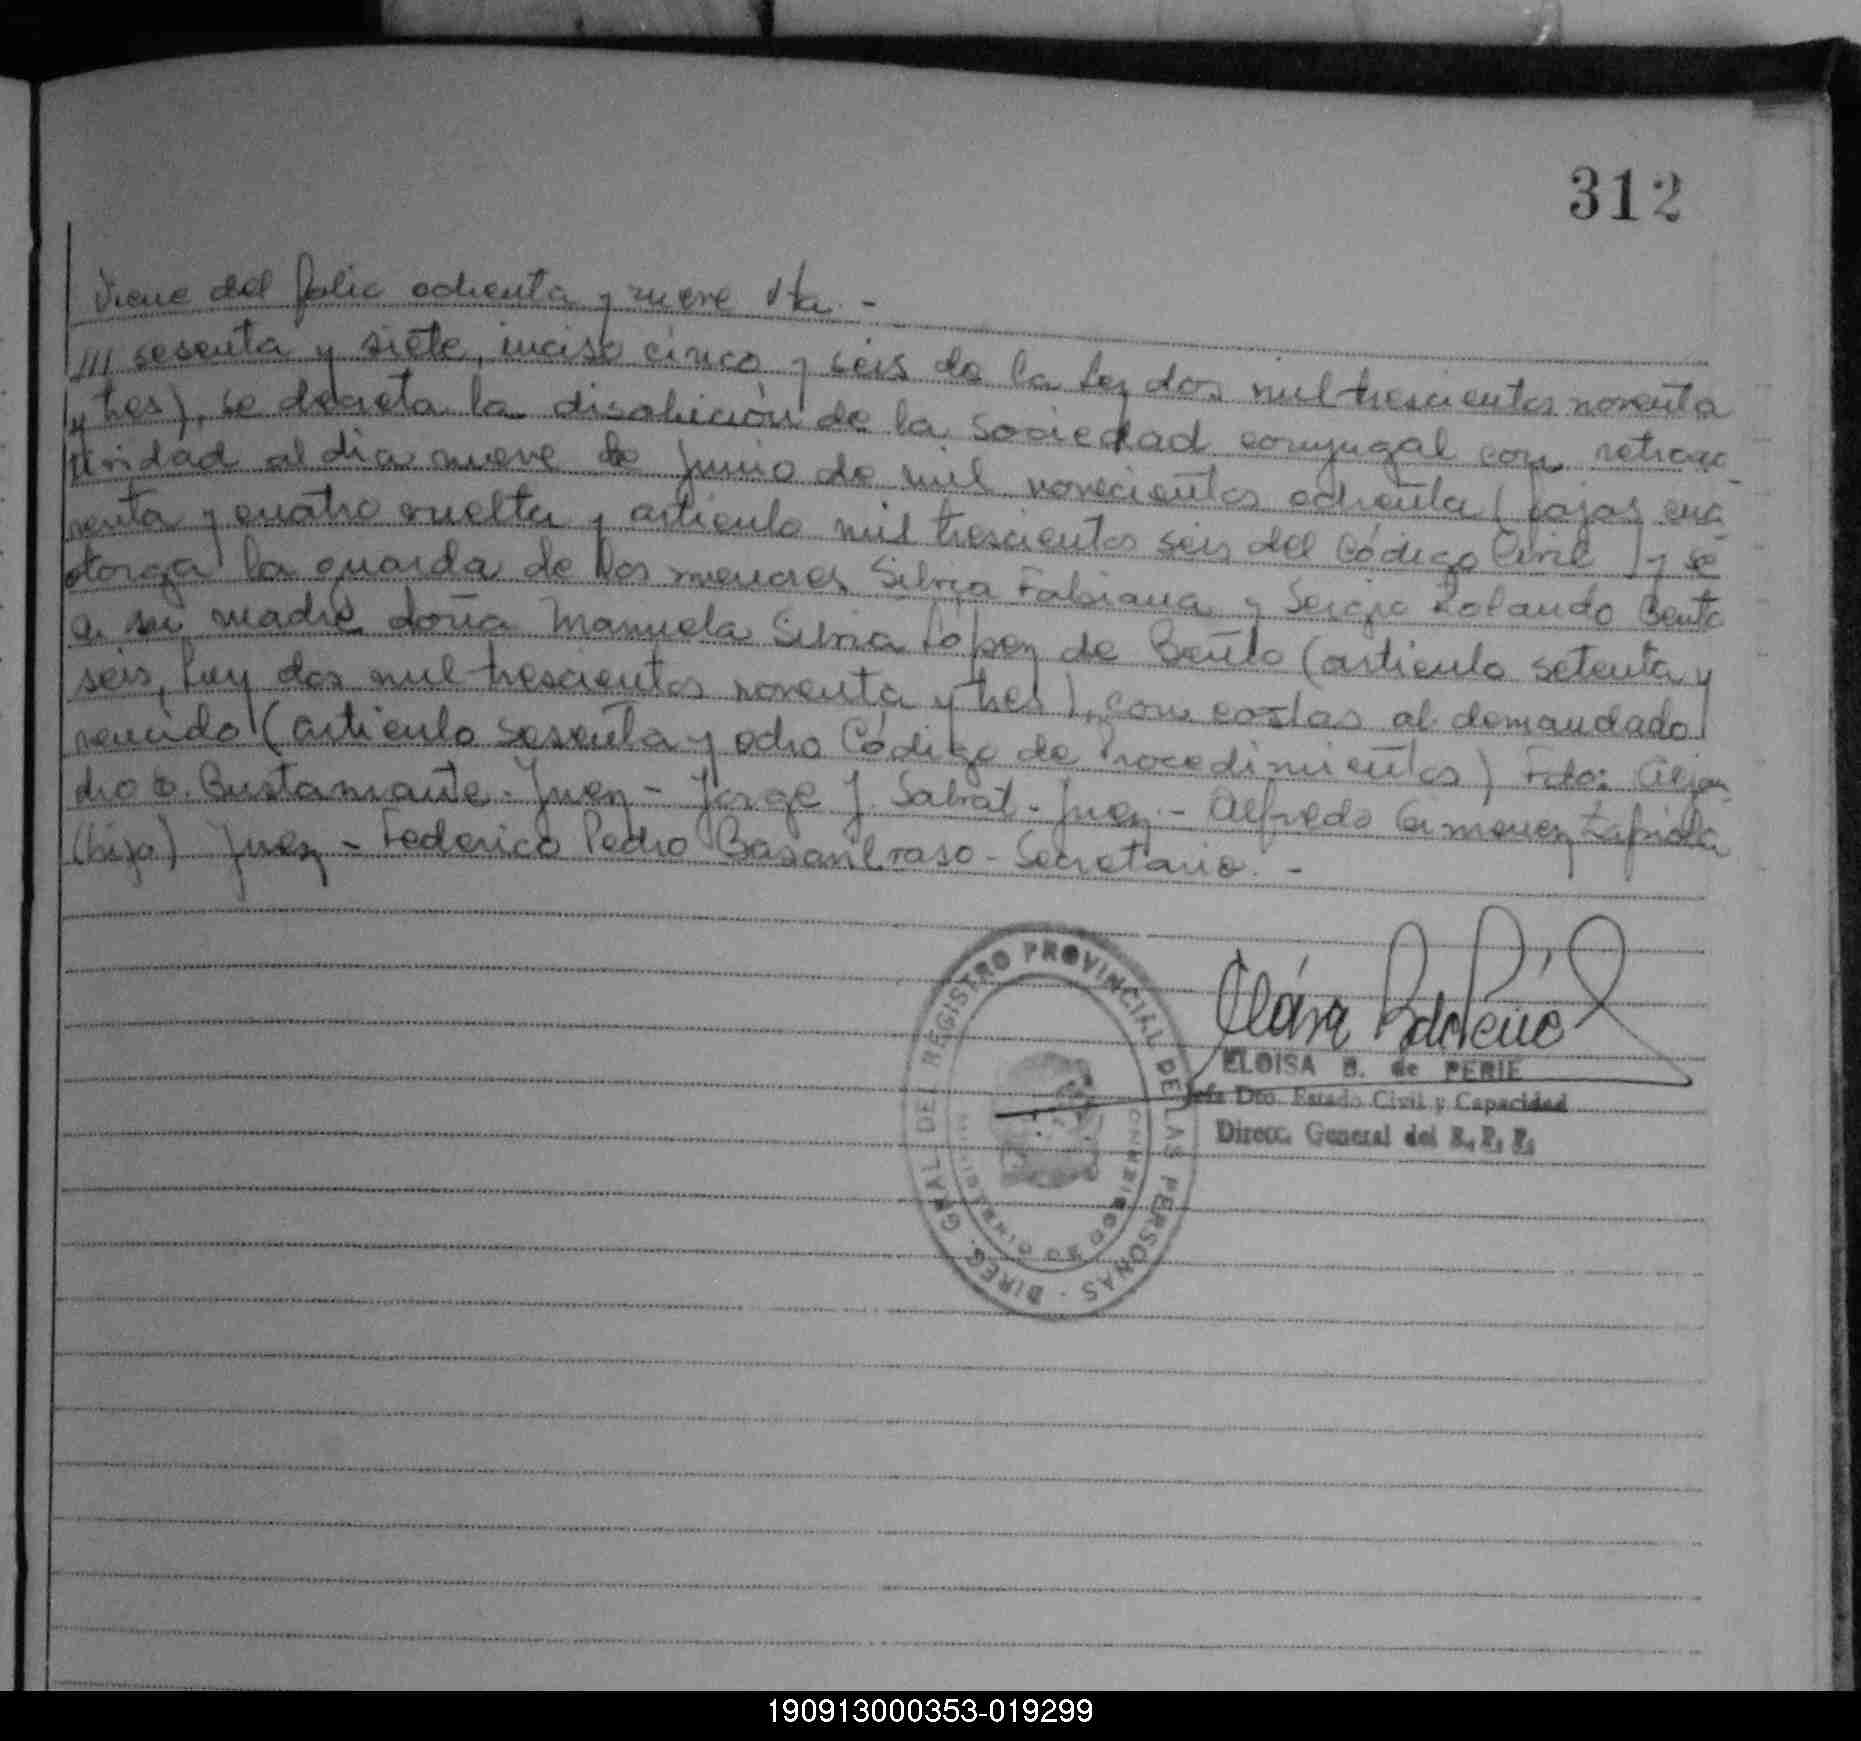 312
Viene del folio ochenta y nueve Vta. -
/// sesenta y siete, inciso cinco y seis de la Ley dos mil trescientos noventa
y tres), se decreta la disolución de la sociedad conyugal con retroac-
tividad al dia nueve de Junio de mil novecientos ochenta (fojas cua-
renta y cuatro vuelta y artículo mil trescientos seis del Código Civil) y se
otorga la guarda de los menores Silvia Fabiana y Sergio Rolando Bento
a su madre doña Manuela Silvia López de Bento (artículo setenta y
seis, Ley dos mil trescientos noventa y tres), con costas al demandado
vencido (artículo sesenta y ocho Código de Procedimientos) Fdo: Alejan-
dro E. Bustamante - Juez - Jorge J. Sabrat - Juez - Alfredo Gimenez Zapiola
(hijo) Juez - Federico Pedro - Secretario. -
DIREG. GRAL. DEL REGISTRO PROVINCIAL DE LAS PERSONAS
ELOISA B. de PERIE
Jefa Dto. Estado Civil y Capacidad
Direcc. General del R. P. P.
190913000353-019299